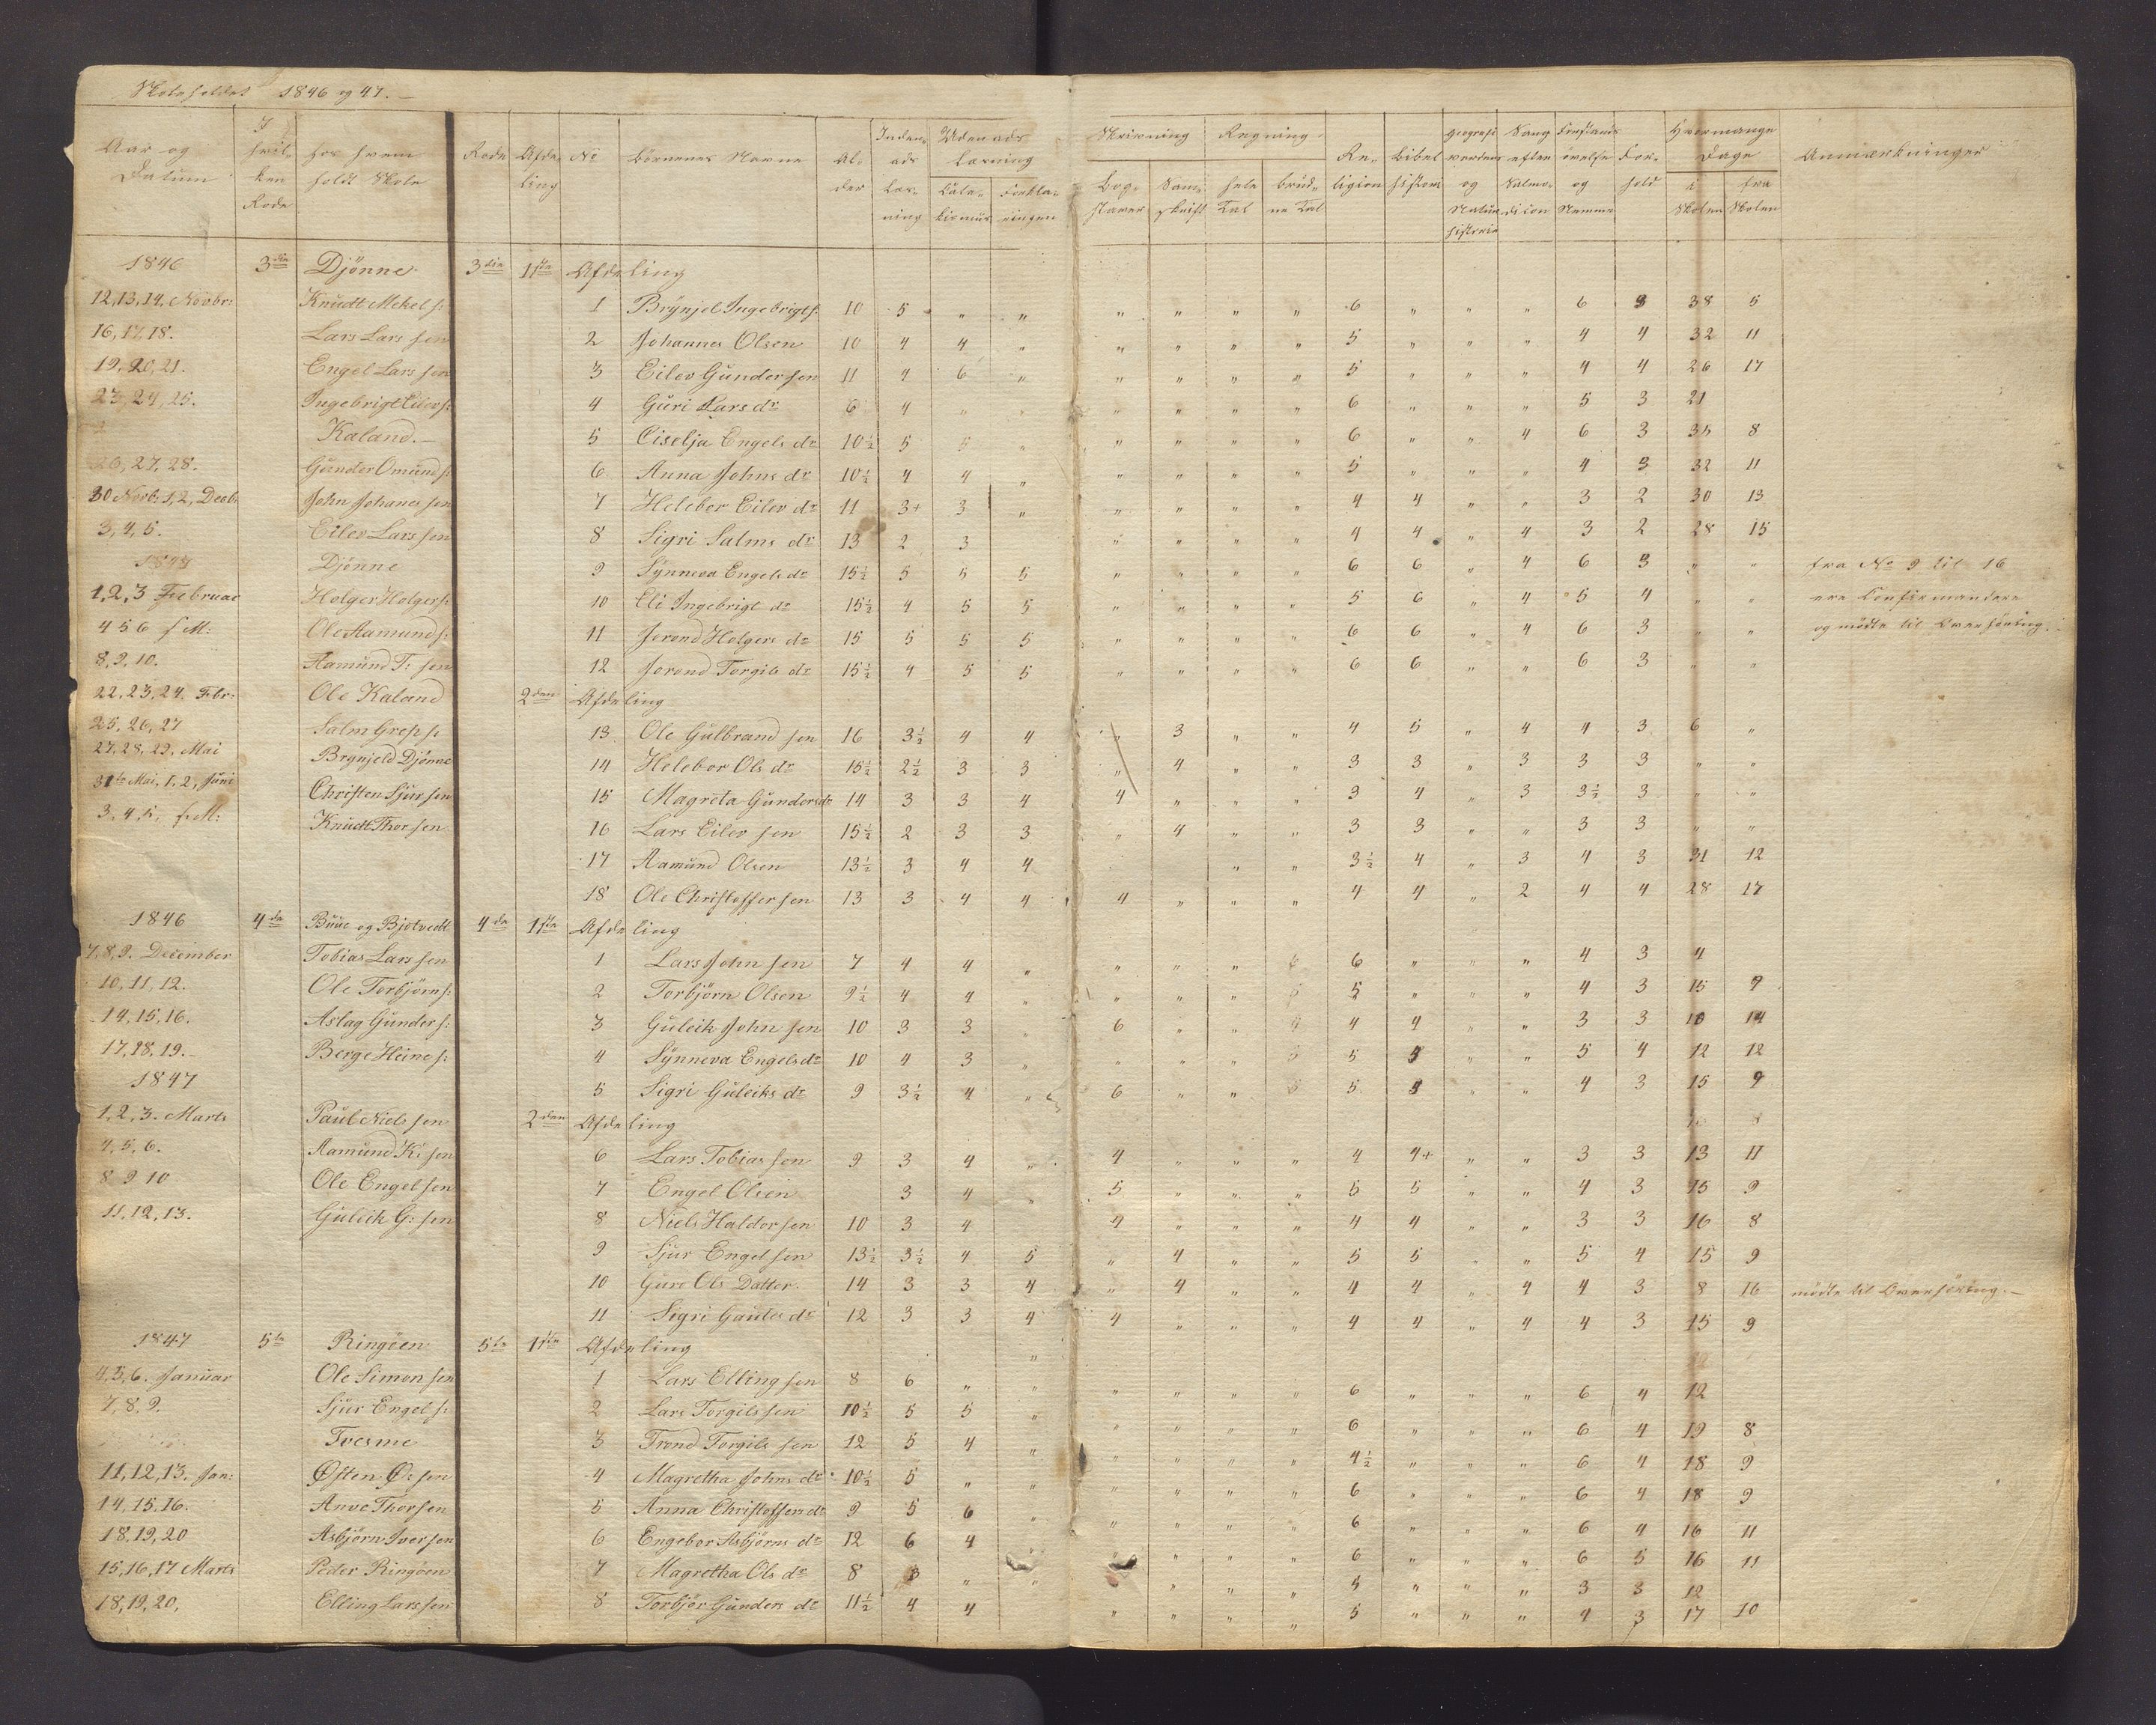 Skoleholdet 1846 og 47.
Aar og Datum | I hvilken Rode | hos hvem holdt Skole | Rode | Afdeling | No | Börnenes Navne | Alder | Inden ads Læsning | Uden ads Læsning: Catekismus, Forklaringen | Skrivning: Bogstaver, Samskrift | Regning: hele Tal, brudne Tal | Religion | Bibel historie | geografi verdens og Natur historie | Sang efter Salmodicon | Forstands övelse og Nemme | Forhold | Hvormange Dage: i Skolen, fra Skolen | Anmærkninger
1846 3die Djönne 3die 1ste Afdeling
12, 13, 14. Novbr: Knudt Mikel s: 1 Brynjel Ingebrigts: 10 5 " " " " " " 6 " " " 6 3 38 5
16, 17, 18. Lars Larssen 2 Johannes Olsen 10 4 4 " " " " " 5 " " " 4 4 32 11
19, 20, 21. Engel Larssen 3 Eilev Gundersen 11 4 6 " " " " " 5 " " " 4 4 26 17
23, 24, 25. Ingebrigt Eilevs: 4 Guri Lars dr 6 4 " " " " " 6 " " " 5 3 21
Kaland.— 5 Ciselja Engels dr 10½ 5 5 " " " " " 6 " " 4 6 3 35 8
26, 27, 28. Gunder Omunds: 6 Anna Johns dr 10½ 4 4 " " " " " 5 " " " 4 3 32 11
30 Novb: 1, 2, Decb. John Johanessen 7 Helebor Eilev dr 11 3+ 3 " " " " " 4 4 " " 3 2 30 13
3, 4, 5. Eilev Larssen 8 Sigri Salms dr 13 2 3 " " " " 4 4 " 4 3 2 28 15
1847 Djönne 9 Synneva Engels dr 15½ 5 5 5 " " " " 6 6 " 4 6 3 " " fra No 9 til 16
1, 2, 3 Februar Holger Holgers: 10 Eli Ingebrigt dr 15½ 4 5 5 " " " " 5 6 " 4 5 4 " " ere Confirmander
4 5 6 s M: Ole Aamunds: 11 Jorond Holgers dr 15 5 5 5 " " " " 6 6 " 4 6 3 " " og mödte til Overhöring.
8, 9, 10. Aamund T: sen 12 Jorond Torgils dr 15½ 4 5 5 " " " " 6 6 " " 6 3 " "
22, 23, 24. Febr: Ole Kaland 2den Afdeling
25, 26, 27 Salm 13 Ole Gulbrandsen 16 3½ 4 4 " 3 " " 4 5 " 4 4 3 6 "
27, 28, 29, Mai Brynjeld Djönne 14 Helebor Ols dr 15½ 2½ 3 3 " 4 " " 3 3 " 3 3 3 " "
31te Mai, 1, 2, Juni Christen Sjursen 15 Magreta Gunders dr 14 3 3 4 4 " " " 3 4 " 3 3½ 3 " "
3, 4, 5, s M: Knudt Thorsen 16 Lars Eilevsen 15½ 2 3 3 " 4 " " 3 3 " " 3 3 " "
17 Aamund Olsen 13½ 3 4 4 " " 3½ 4 " 3 4 3 31 12
18 Ole Christoffersen 13 3 4 4 4 " " " 4 4 " 2 4 4 28 17
1846 4de Buue og Bjotvedt 4de 1ste Afdeling
7, 8, 9. December Tobias Larssen 1 Lars Johnsen 7 4 4 " " " " 6 6 " " " 4 3 4
10, 11, 12. Ole Torbjörns: 2 Torbjörn Olsen 9½ 4 4 " " " " 5 5 " " " 4 3 15 9
14, 15, 16. Aslag Gunders: 3 Guleik Johnsen 10 3 3 " 6 " " 4 4 4 " " 3 3 10 14
17, 18, 19. Berge Heines: 4 Synneva Engels dr 10 4 3 " " " " 5 5 " " 5 4 12 12
1847 5 Sigri Guleiks dr 9 3½ 4 " 6 " " 5 " " 4 3 15 9
1, 2, 3. Marts Paul Nielssen 2den Afdeling 8
4, 5, 6. Aamund K: sen 6 Lars Tobiassen 9 3 4 " 4 " " " 4 4+ " " 3 3 13 11
8 9 10 Ole Engelsen 7 Engel Olsen 3 4 " 5 " " " 5 5 " " 4 3 15 9
11, 12, 13. Guleik G: sen 8 Niels Haldorsen 10 3 4 4 " " " 4 4 " " 3 3 16 8
9 Sjur Engelsen 13½ 3½ 4 5 " 4 " " 5 5 " " 5 4 15 9
10 Guri Ols Datter. 14 3 3 4 " 4 " " 4 4 " 4 4 3 8 16 mödte til Overhöring.—
11 Sigri Gautes dr 12 3 3 4 4 " " " 4 4 " 4 4 3 15 9
1847 5te Ringöen 5te 1ste Afdeling
4, 5, 6. Januar Ole Simonsen 1 Lars Ellingsen 8 6 " " " " " " 6 " " " 6 4 12
7, 8, 9. Sjur Engels: 2 Lars Torgilssen 10½ 5 5 " " " " " 6 " " " 6 4 19 8
Tvesme 3 Trond Torgilssen 12 5 4 " " " " " 4½ " " " 6 4 18 9
11, 12, 13. Jan: Östen Ö: sen 4 Magretha Johns dr 10½ 5 " " " " " " 6 " " " 6 4 18 9
14, 15, 16. Anve Thorsen 5 Anna Christoffers dr 9 5 6 " " " " " 6 " " " 6 4 16 11
18, 19, 20 Asbjörn Iversen 6 Engebor Asbjörns dr 12 6 4 " " " " " 6 " " " 6 5 16 11
15, 16, 17 Marts Peder Ringöen 7 Magretha Ols dr 8 " " " " " 5 " " " 3 3 12
18, 19, 20, Elling Larssen 8 Torbjör Gunders dr 11½ 4 4 " " " " 5 " " " 4 3 17 10